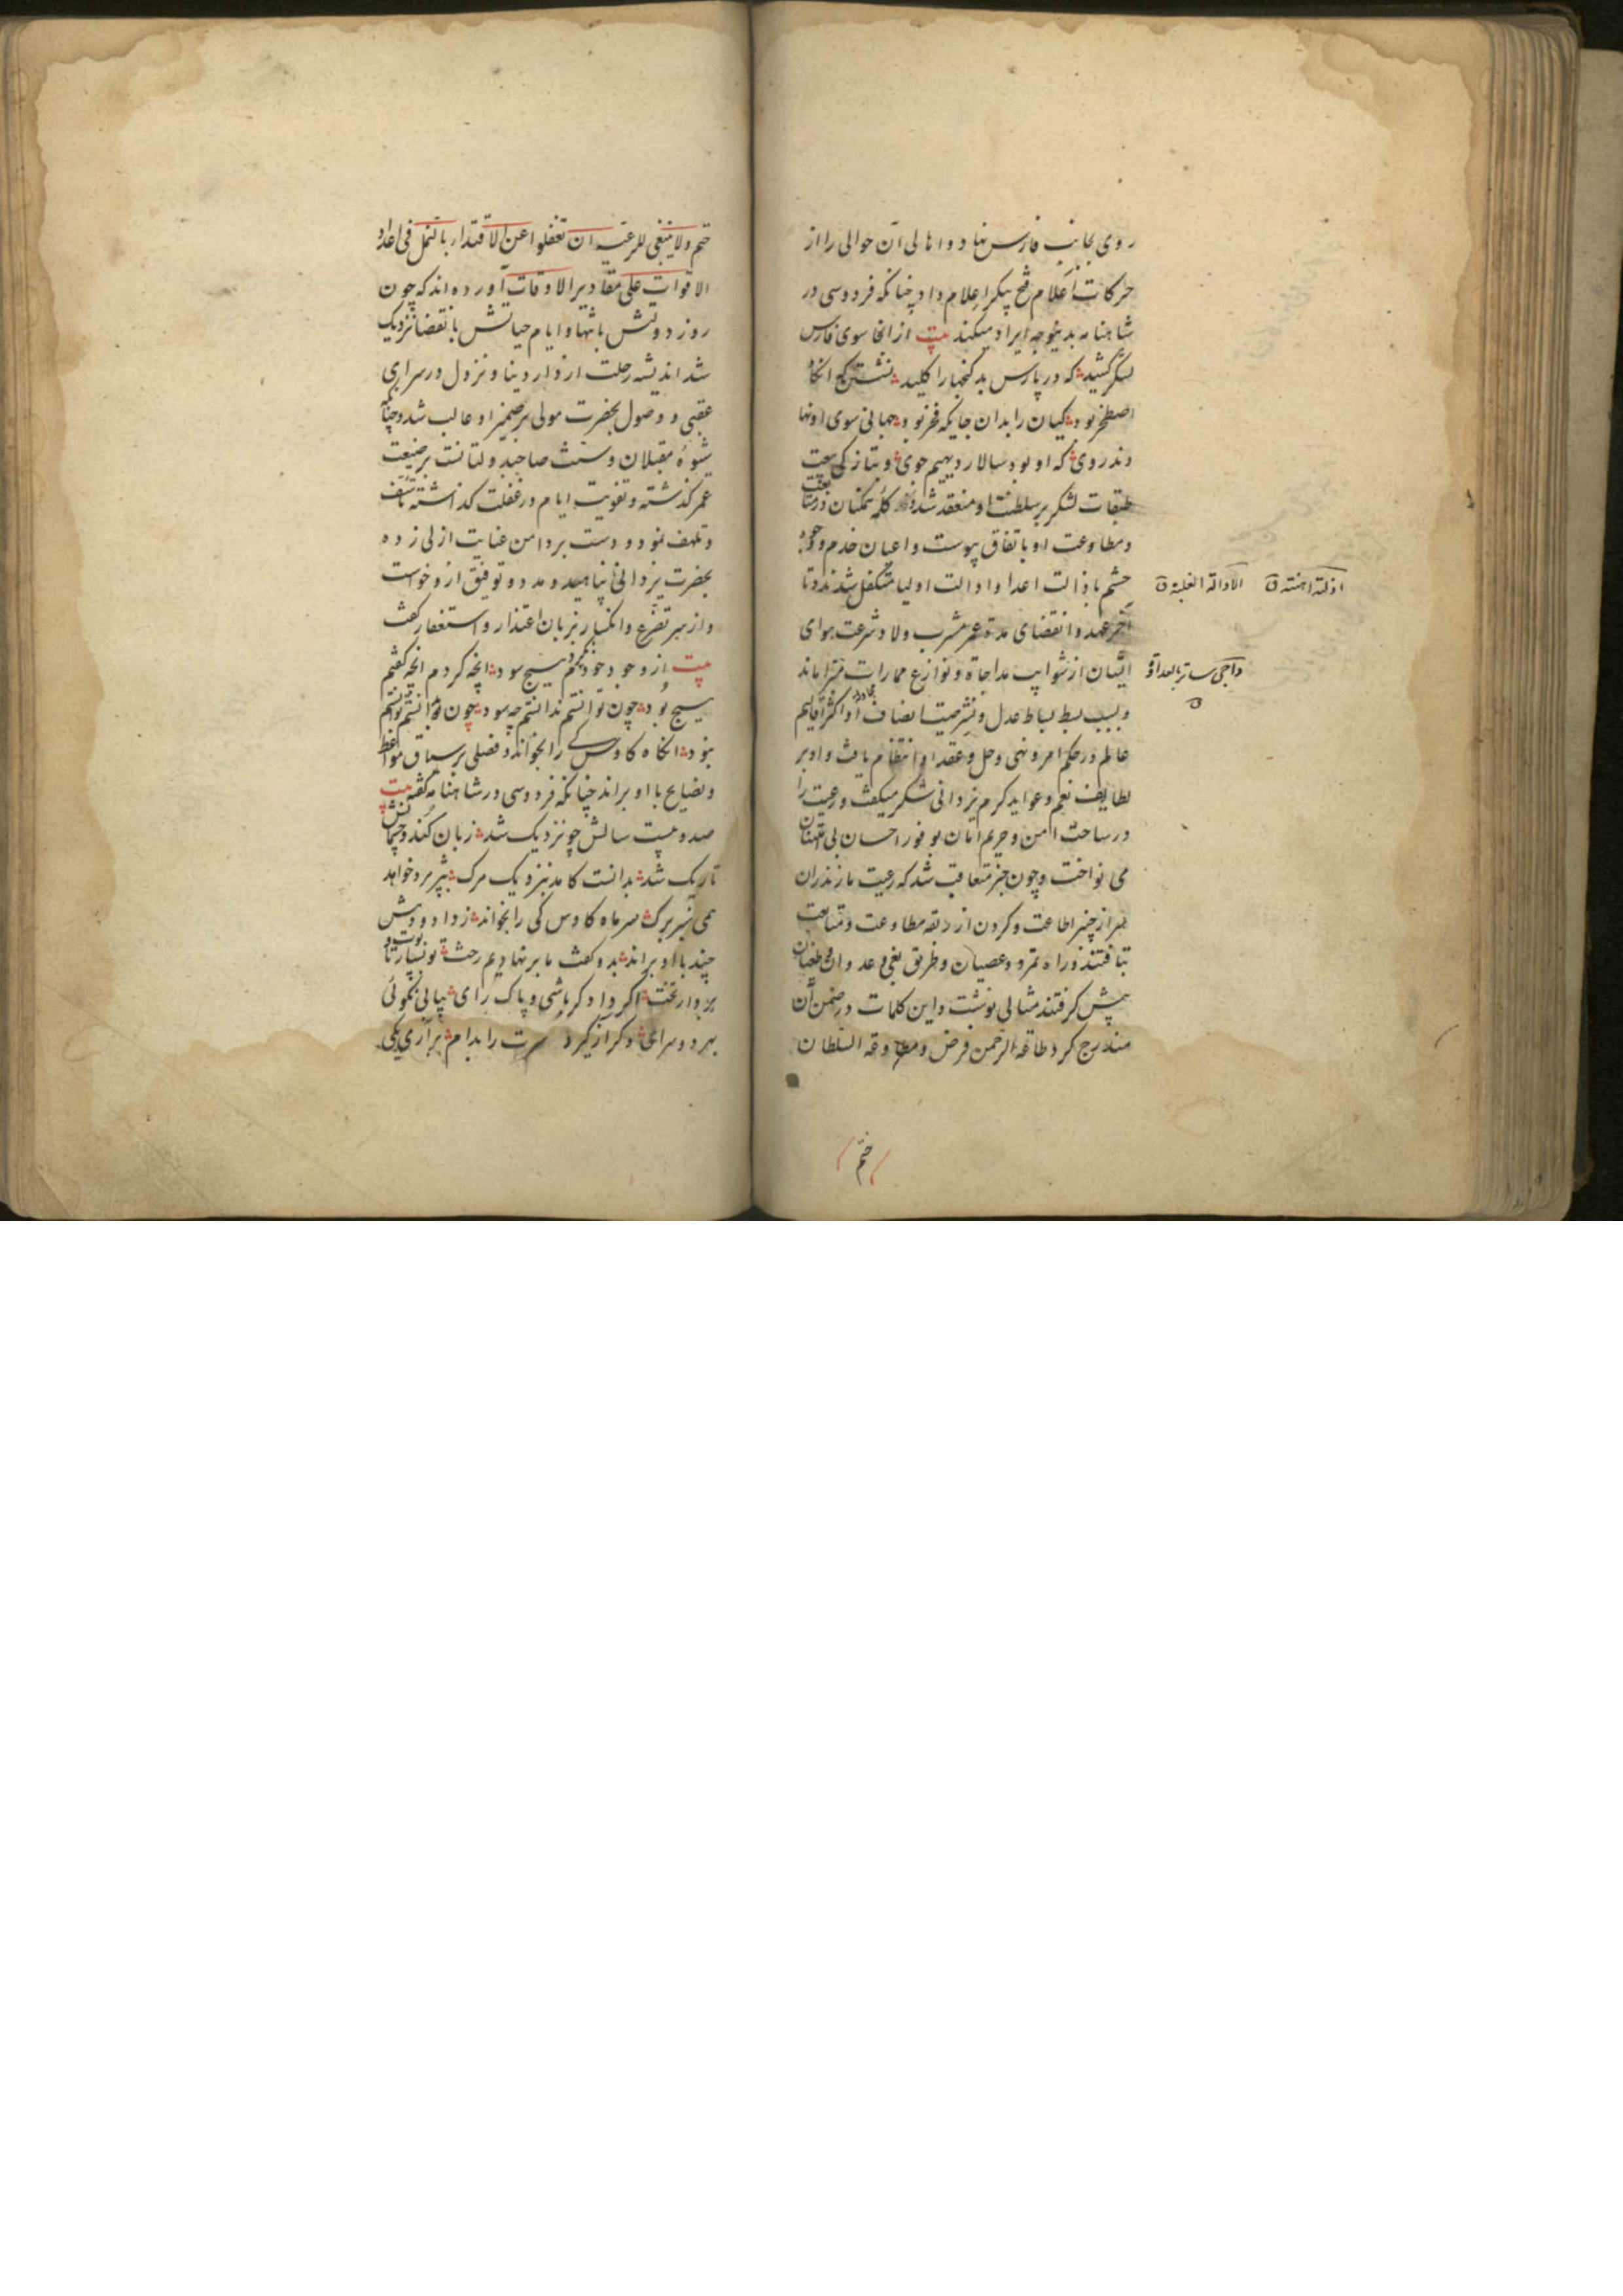 روی بجانب فارس نهاد و اهالی آن حوالی را از
حرکات اعلام فتح پیکر اعلام داد چنانکه فردوسی در
شاهنامه بدینوجه ایراد میکند بیت از انجا سوی فارس
لشکر کشید که در پارس بد گنجها را کلید نشستن گه انگاه
اصطخر بود کیان را بدان جایگه فخر بود جهانی سوی او نها
دند روی که او بود سالار دیهیم جوی و بتازگی بیعت
طبقات لشکر بر سلطنت او منعقد شد و کلمه همکنان در متابعت
و مطاوعت او باتفاق پیوست و اعیان خدم و وجوه
حشم باذالت اعدا و ادالت اولیا متکفل شدند و تا
آخر عهد و انقضای مدة عمر مشرب ولا و شرعت هوای
ایشان از شوایب مداجاة و نوازع ممارات مبرا ماند
و بسبب بسط بساط عدل و نشر صیت انصاف او اکثر اقالیم
عالم در حکم امر و نهی و حل و عقد او انتظام یافت و او بر
لطایف نعم و عواید کرم یزدانی شکر میگفت و رعیت را
در ساحت امن و حریم امان بوفور احسان بی امتنان
می نواخت و چون خبر متعاقب شد که رعیت مازندران
سر از چنبر اطاعت و کردن از ربقه مطاوعت و متابعت
بتافتند و راه تمرد و عصیان و طریق بغی و عدوان و طغیان
پیش گرفتند مثالی نوشت و این کلمات در ضمن آن
مندرج کرد طاعة الرحمن فرض ومطاوعة السلطان
ختم
الادالة الغلبة
داجی ساتر بالعداوة
حتم ولا ینبغی للرعیه ان تغفلوا عن الاقتدار بالنمل فی اعداد
الاقوات علی مقادیر الاوقات آورده اند که چون
روز دولتش بانتها و ایام حیاتش بانقضا نزدیک
شد اندیشه رحلت از دار دنیا و نزول در سرای
عقبی و وصول بحضرت مولی بر ضمیر او غالب شد و چنانکه
شیوهٔ مقبلان و سنت صاحبدولتانست بر ضیعت
عمر گذشته و تفویت ایام در غفلت گذاشته تاسف
و تلهف نمود و دست بر دامن عنایت ازلی زده
بحضرت یزدانی پناهید و مدد و توفیق ازو خواست
و از سر تضرع و انکسار بزبان اعتذار و استغفار گفت
بیت از وجود خود ندیدم هیچ سود انچه کردم انچه گفتم
هیچ بود چون توانستم ندانستم چه سود چون بدانستم توانستم
نبود انگاه کاوس کی را بخواند و فصلی بر سیاق مواعظ
و نصایح با او براند چنانکه فردوسی در شاهنامه گفته بیت
صد و بیست سالش چو نزدیک شد زبان کند و چشمانش
تاریک شد بدانست کامد بنزدیک مرگ بپژمرد خواهد
همی سبز برگ سر ماه کاوس کی را بخواند ز داد و دهش
چند با او براند بدو گفت ما بر نهادیم رخت تو بسپار تابوت و
بردار تخت اگر دادگر باشی و پاک رای بیابی نکوئی
بهر دو سرای وگر آز گیرد سرت را بدام برآری یکی